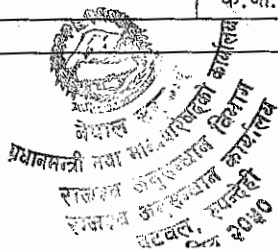 क.जी.
नेपाल सरकार
प्रधानमन्त्री तथा मन्त्रिपरिषद्को कार्यालय
राजश्व अनुसन्धान विभाग
राजश्व अनुसन्धान कार्यालय
बुटवल, रुपन्देही
२०५०